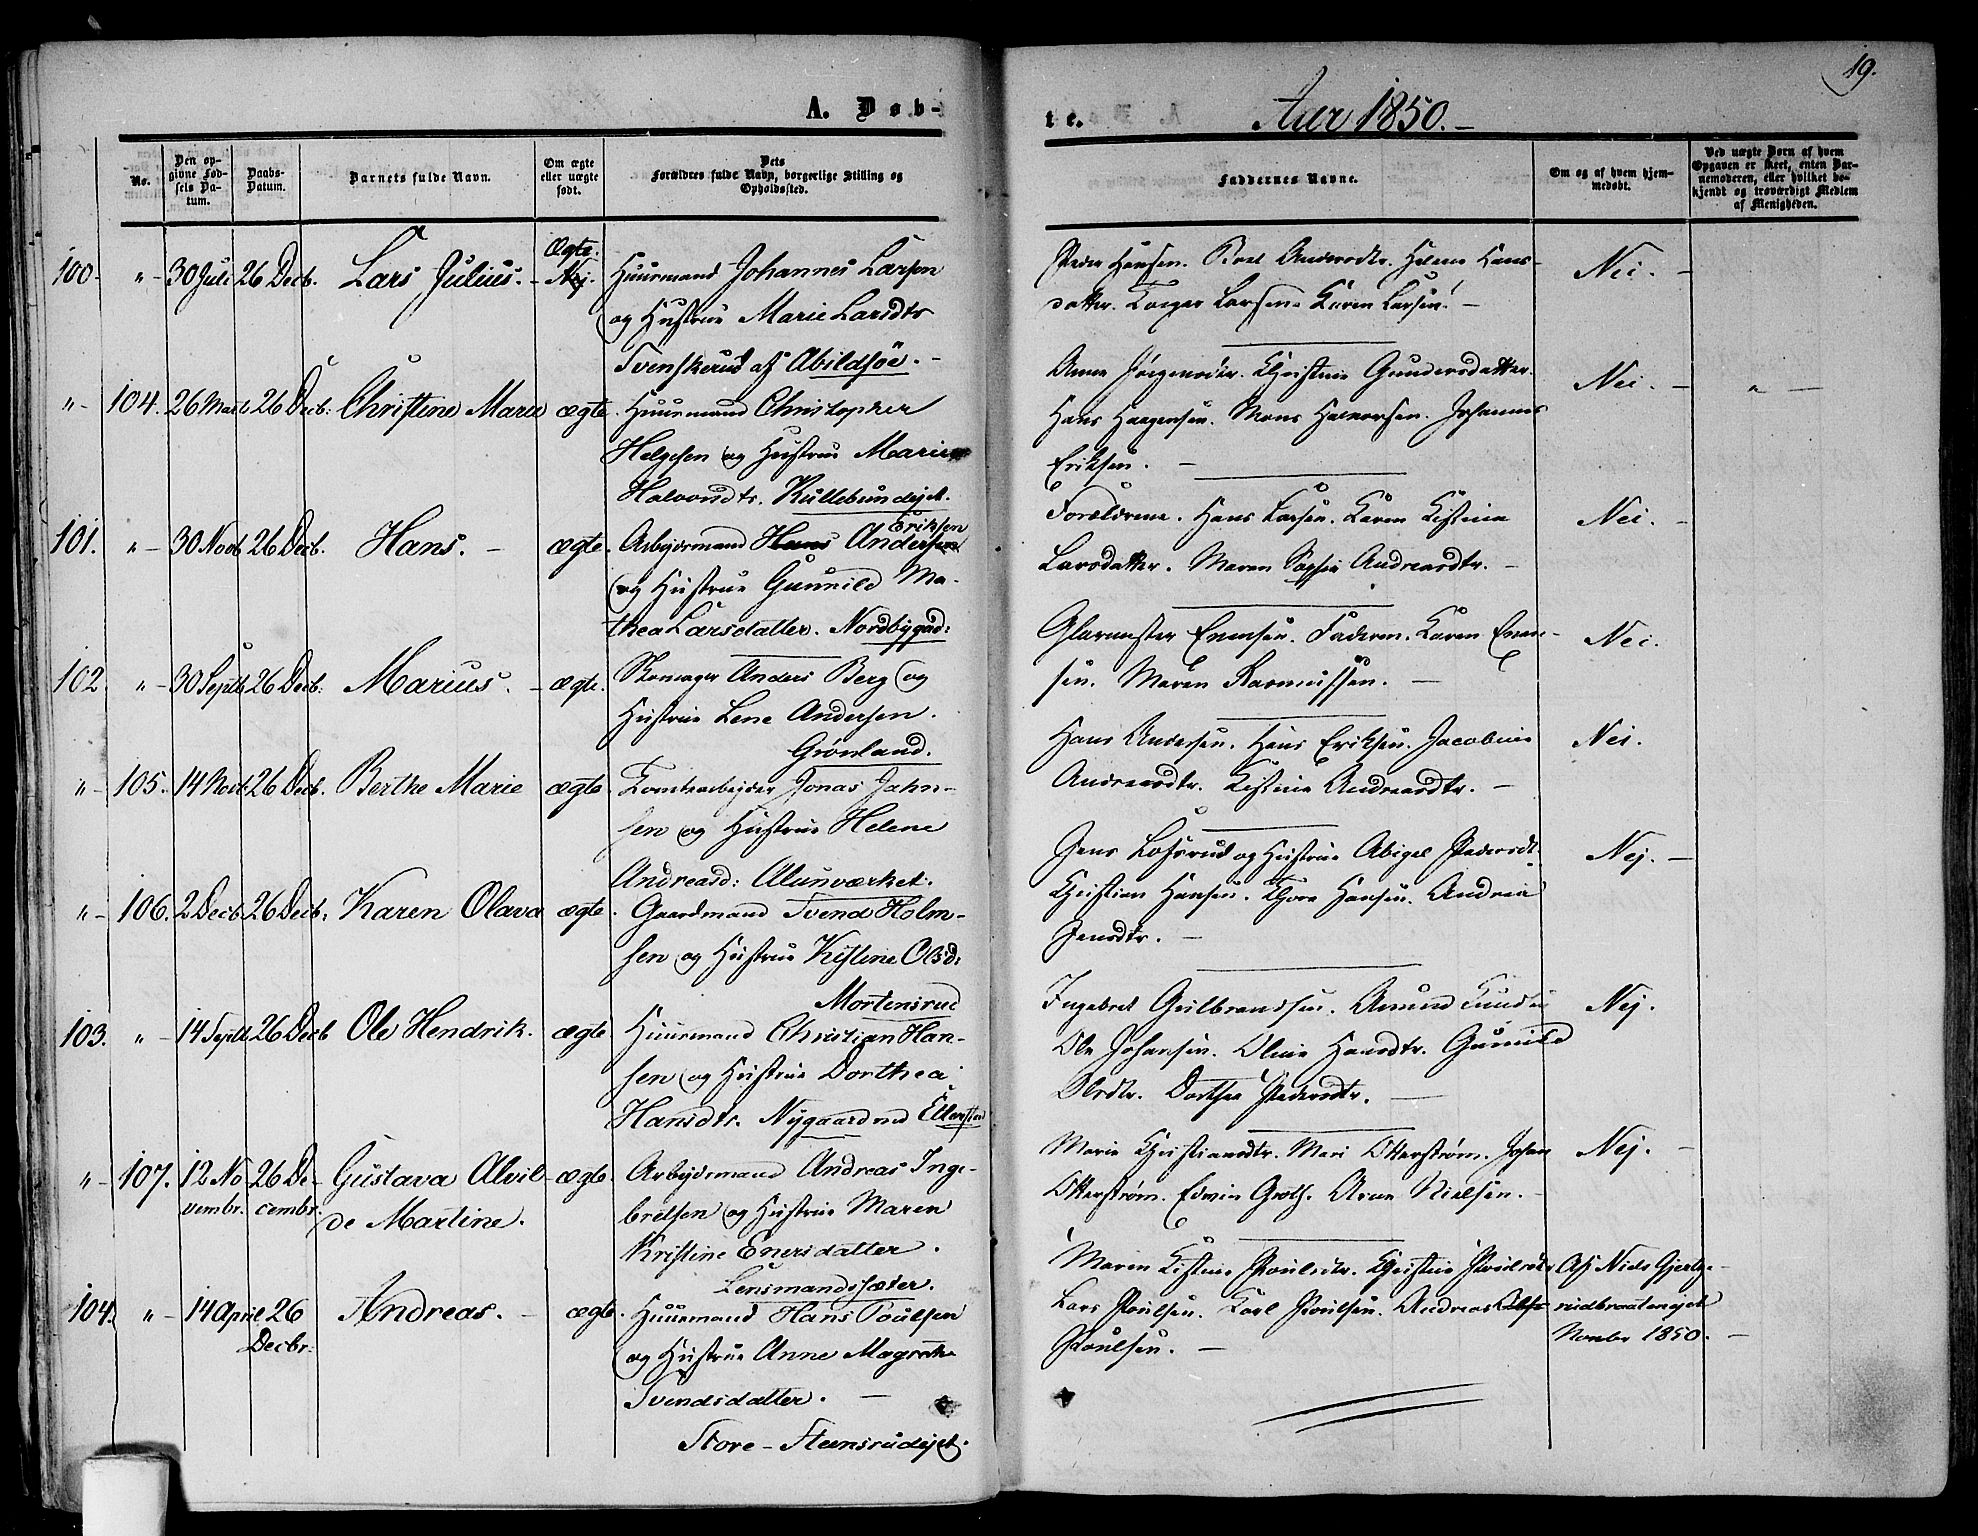 19.
A. Døb-
te. Aar 1850.-
No.
Den op-
givne Fød-
sels Da-
tum.
Daabs-
Datum.
Barnets fulde Navn.
Om ægte
eller uægte
født.
Dets
Forældres fulde Navn, borgerlige Stilling og
Opholdssted.
Faddernes Navne.
Om og af hvem hjem-
medøbt.
Ved uægte Børn af hvem
Opgaven er skeet, enten Bar-
nemoderen, eller hvilket be-
kjendt og troværdigt Medlem
af Menigheden.
100. "- 30 Juli 26 Decb. Lars Julius. - Ægte. Nej. Huusmand Johannes Larsen
og Hustrue Marie Larsdtr
Svenskerud af Abildsöe. -
Peder Hansen. Andersdtr. Helene Hans-
datter. Larsen. Karen Larsen. -
Nei. -
"- 104. 26 26 Decb: Christine Marie ægte. Huusmand Christopher
Helgesen og Hustrue Marie
Halvorsdtr. Kullebundejet.
Anne Jörgensdtr. Christine Gundersdatter.
Hans Haagensen. Mons Halvorsen. Johannes
Eriksen. -
Nei. - " -
101. "- 30 Novb 26 Decb. Hans. - ægte. Arbejdsmand Hans Andersen Eriksen
og Hustrue Gunnild Ma-
thea Larsdatter. Nordbygad:
Forældrene. Hans Larsen. Karen Kistine
Larsdatter. Maren Sophie Andreasdtr. -
Nei. -
102. "- 30 Septb 26 Decb: Marius. - ægte. Skomager Anders Berg og
Hustrue Lene Andersen.
Grönland.
Glarmester Enersen. Faderen. Karen Ener-
sen. Maren Rasmussen. -
Nei.
"- 105. 14 Novb 26 Decb. Berthe Marie ægte. Tomtearbejder Jonas Jahn-
sen og Hustrue Helene
Andreasd: Alunværket.
Hans Andersen. Hans Eriksen. Jacobine
Andreasdtr. Kistine Andreasdtr. -
Nei.
"- 106. 2 Decb 26 Decb. Karen Olava ægte. Gaardmand Svend Holm-
sen og Hustrue Kistine Olsd:
Mortensrud
Jens Lofsrud og Hustrue Abigel Pedersdt
Christian Hansen. Thore Hansen. Andrea
Jensdtr. -
Nej. -
103. "- 14 Septb 26 Decb Ole Hendrik. ægte. Huusmand Christian Han-
sen og Hustrue Dorthea
Hansdtr. Nygaard
Ingebret Gulbrandsen. Amund
Ole Johansen. Oline Hansdtr. Gunild
Olsdtr. Dorthea Pedersdtr. -
Nej.
"- 107. 12 No 26 De- Gustava Alvil- ægte. Arbejdsmand Andreas Inge-
vembr. cembr. de Martine. bretsen og Hustrue Maren
Kristine Enersdatter.
Lensmandssæter.
Marie Christiansdtr. Mari Otterström. Johan
Otterström. Edvin Groth. Arne Nielsen. -
Nej. -
104. "- 14 April 26 Andreas. - ægte. Huusmand Hans Poulsen
Decbr: og Hustrue Anne Magrethe
Svendsdatter. -
Store-Steensrudejet.
Maren Kistine Poulsdtr. Christine Poulsdtr
Lars Poulsen. Karl Poulsen. Andreas
Poulsen. -
Af Niels Gjerse-
rudbraatenejet
Novbr 1850. -